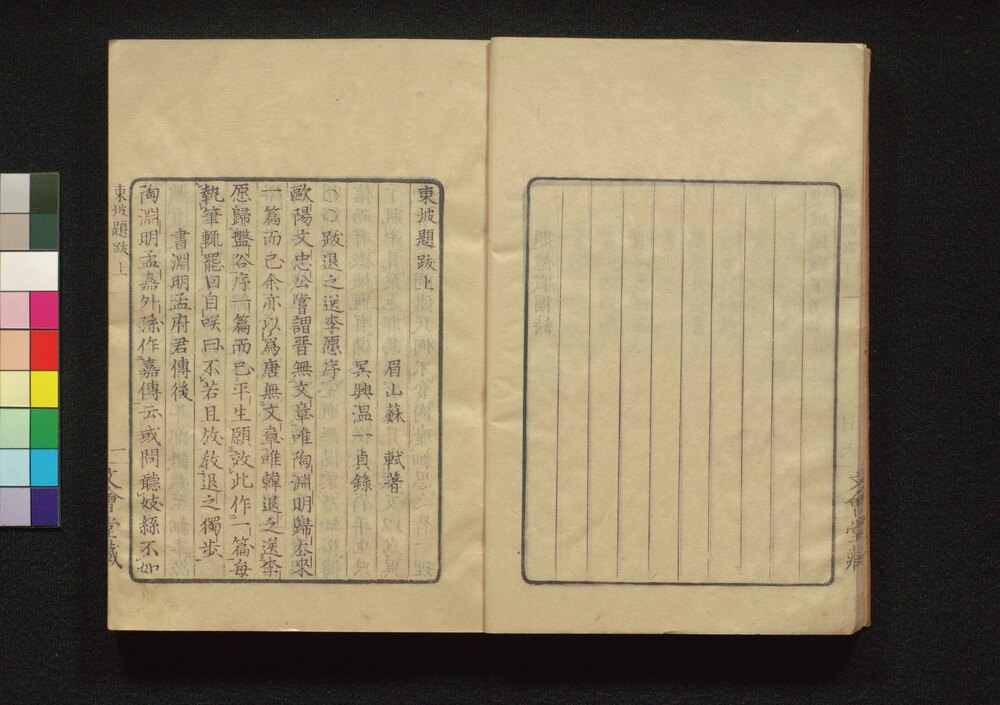 文會堂藏
東坡題跋上
眉山蘇軾著
吳興温一貞錄
跋退之送李愿序
歐陽文忠公嘗謂晋無文章唯陶淵明歸去來
一篇而已余亦以爲唐無文章唯韓退之送李
愿歸盤谷序一篇而已平生願效此作一篇每
執筆輒罷因自咲曰不若且放教退之獨步
書淵明孟府君傳後
陶淵明孟嘉外孫作嘉傳云或問聽妓絲不如
東坡題跋上
一
文會堂藏